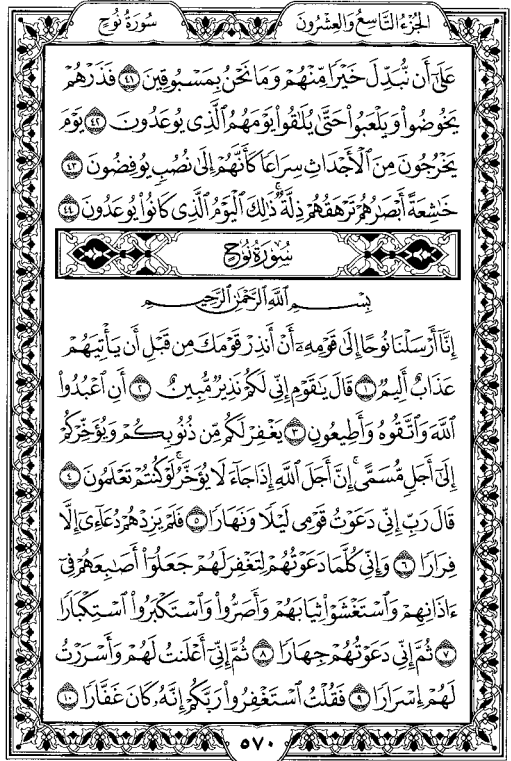 سُورَةُ نُوحٍ الجُزْءُ التَّاسِعُ وَالعِشْرُونَ
عَلَىٰٓ أَن نُّبَدِّلَ خَيْرًا مِّنْهُمْ وَمَا نَحْنُ بِمَسْبُوقِينَ ٤١ فَذَرْهُمْ
يَخُوضُوا۟ وَيَلْعَبُوا۟ حَتَّىٰ يُلَٰقُوا۟ يَوْمَهُمُ ٱلَّذِى يُوعَدُونَ ٤٢ يَوْمَ
يَخْرُجُونَ مِنَ ٱلْأَجْدَاثِ سِرَاعًا كَأَنَّهُمْ إِلَىٰ نُصُبٍ يُوفِضُونَ ٤٣
خَٰشِعَةً أَبْصَٰرُهُمْ تَرْهَقُهُمْ ذِلَّةٌ ۚ ذَٰلِكَ ٱلْيَوْمُ ٱلَّذِى كَانُوا۟ يُوعَدُونَ ٤٤
سُورَةُ نُوحٍ
بِسْمِ ٱللَّهِ ٱلرَّحْمَٰنِ ٱلرَّحِيمِ
إِنَّآ أَرْسَلْنَا نُوحًا إِلَىٰ قَوْمِهِۦٓ أَنْ أَنذِرْ قَوْمَكَ مِن قَبْلِ أَن يَأْتِيَهُمْ
عَذَابٌ أَلِيمٌ ١ قَالَ يَٰقَوْمِ إِنِّى لَكُمْ نَذِيرٌ مُّبِينٌ ٢ أَنِ ٱعْبُدُوا۟
ٱللَّهَ وَٱتَّقُوهُ وَأَطِيعُونِ ٣ يَغْفِرْ لَكُم مِّن ذُنُوبِكُمْ وَيُؤَخِّرْكُمْ
إِلَىٰٓ أَجَلٍ مُّسَمًّى ۚ إِنَّ أَجَلَ ٱللَّهِ إِذَا جَآءَ لَا يُؤَخَّرُ ۖ لَوْ كُنتُمْ تَعْلَمُونَ ٤
قَالَ رَبِّ إِنِّى دَعَوْتُ قَوْمِى لَيْلًا وَنَهَارًا ٥ فَلَمْ يَزِدْهُمْ دُعَآءِىٓ إِلَّا
فِرَارًا ٦ وَإِنِّى كُلَّمَا دَعَوْتُهُمْ لِتَغْفِرَ لَهُمْ جَعَلُوٓا۟ أَصَٰبِعَهُمْ فِىٓ
ءَاذَانِهِمْ وَٱسْتَغْشَوْا۟ ثِيَابَهُمْ وَأَصَرُّوا۟ وَٱسْتَكْبَرُوا۟ ٱسْتِكْبَارًا
٧ ثُمَّ إِنِّى دَعَوْتُهُمْ جِهَارًا ٨ ثُمَّ إِنِّىٓ أَعْلَنتُ لَهُمْ وَأَسْرَرْتُ
لَهُمْ إِسْرَارًا ٩ فَقُلْتُ ٱسْتَغْفِرُوا۟ رَبَّكُمْ إِنَّهُۥ كَانَ غَفَّارًا ١٠
٥٧٠